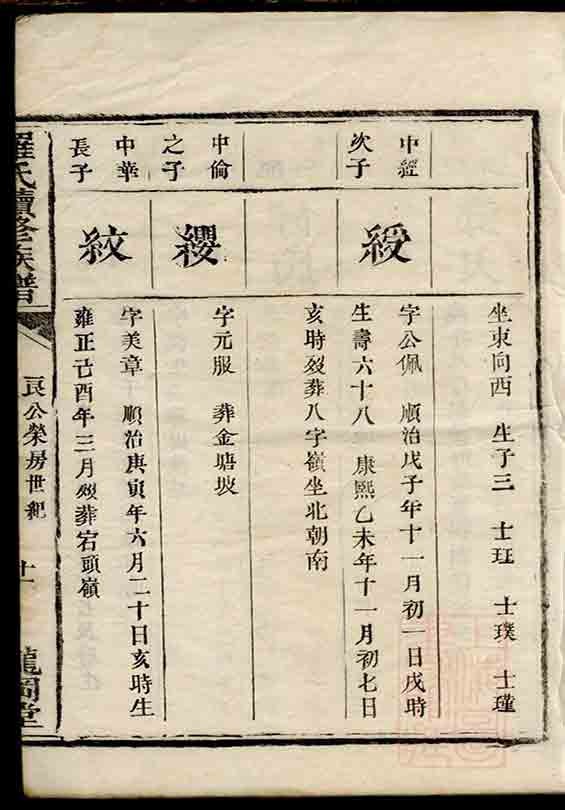 坐東向西 生子三 士玨 士璞 士瑾
中經
次子
綬
字公佩 順治戊子年十一月初一日戌時
生壽六十八 康熙乙未年十一月初七日
亥時歿葬八字嶺坐北朝南
中倫
之子
纓
字元服 葬金塘坡
中華
長子
紋
字美章 順治庚寅年六月二十日亥時生
雍正己酉年三月歿葬宕頭嶺
羅氏續修族譜
良公榮房世紀
十一
龍岡堂